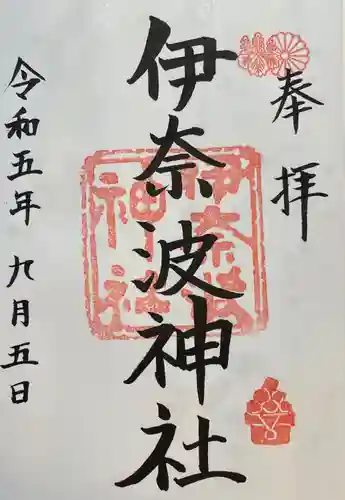 奉拝
伊奈波神社
伊奈波
神社
令和五年九月五日